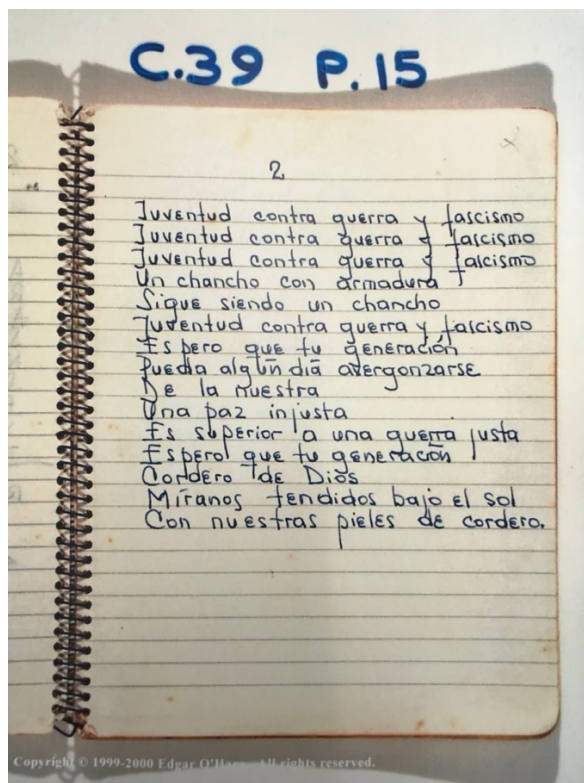 C.39 P.15
2
Juventud contra guerra y fascismo
Juventud contra guerra y fascismo
Juventud contra guerra y falcismo
Un chancho con armadura
Sigue siendo un chancho
Juventud contra guerra y fascismo
Espero que tu generación
Pueda algún día avergonzarse
De la nuestra
Una paz injusta
Es superior a una guerra justa
Espero que tu generación
Cordero de Dios
Míranos tendidos bajo el sol
Con nuestras pieles de cordero.
Copyright © 1999-2000 Edgar O'Hara. All rights reserved.